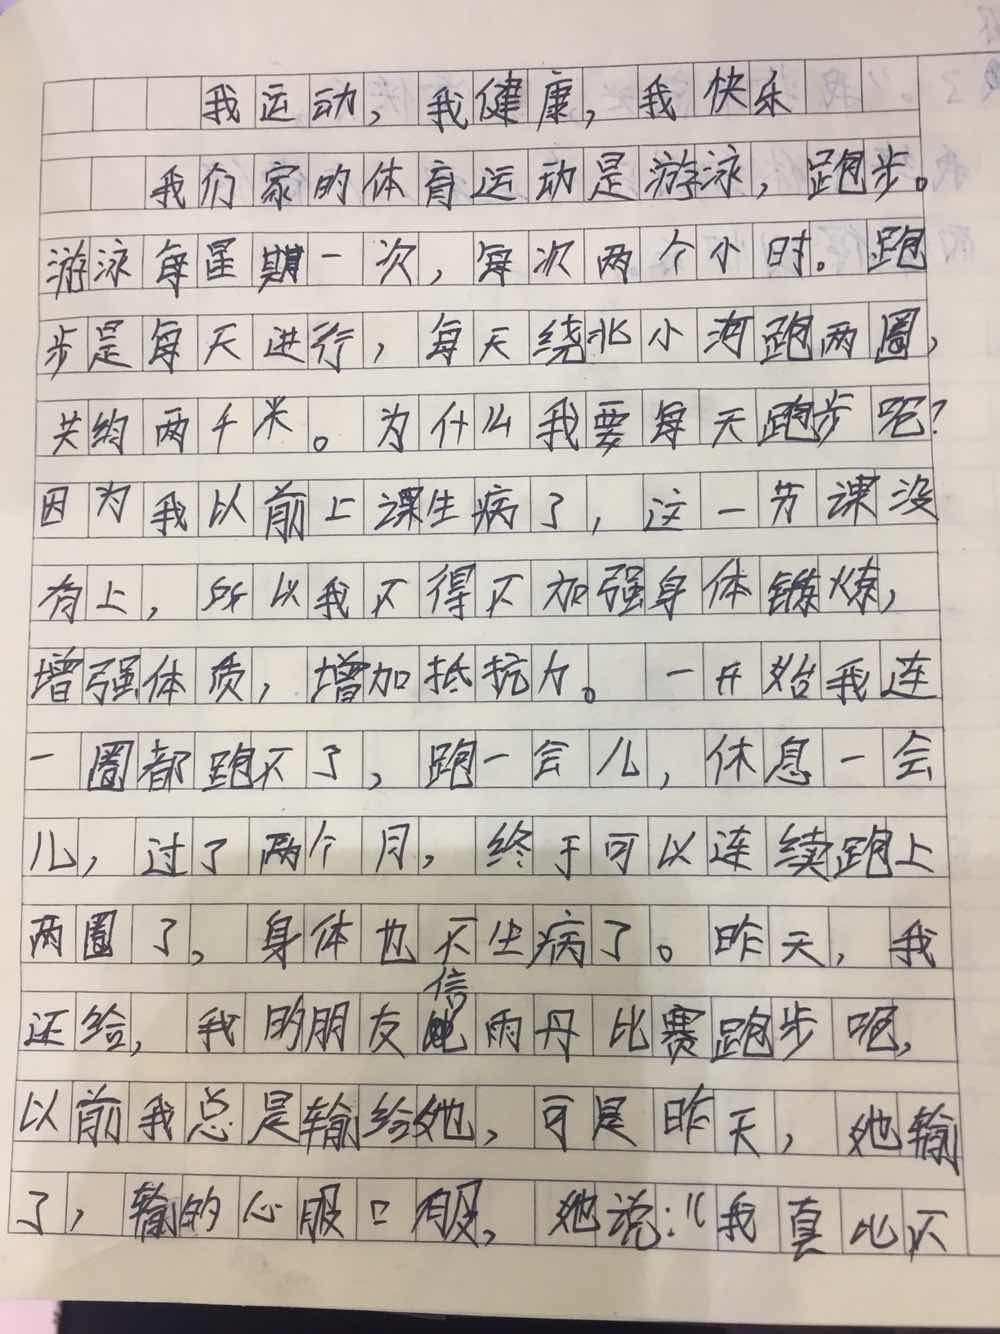 我运动，我健康，我快乐
我们家的体育运动是游泳，跑步。
游泳每星期一次，每次两个小时。跑
步是每天进行，每天绕北小河跑两圈，
共约两千米。为什么我要每天跑步呢？
因为我以前上课生病了，这一节课没
有上，所以我不得不加强身体锻炼，
增强体质，增加抵抗力。一开始我连
一圈都跑不了，跑一会儿，休息一会
儿，过了两个月，终于可以连续跑上
两圈了。身体也不生病了。昨天，我
还给，我的朋友信雨丹比赛跑步呢，
以前我总是输给她，可是昨天，她输
了，输的心服口服，她说：“我真比不